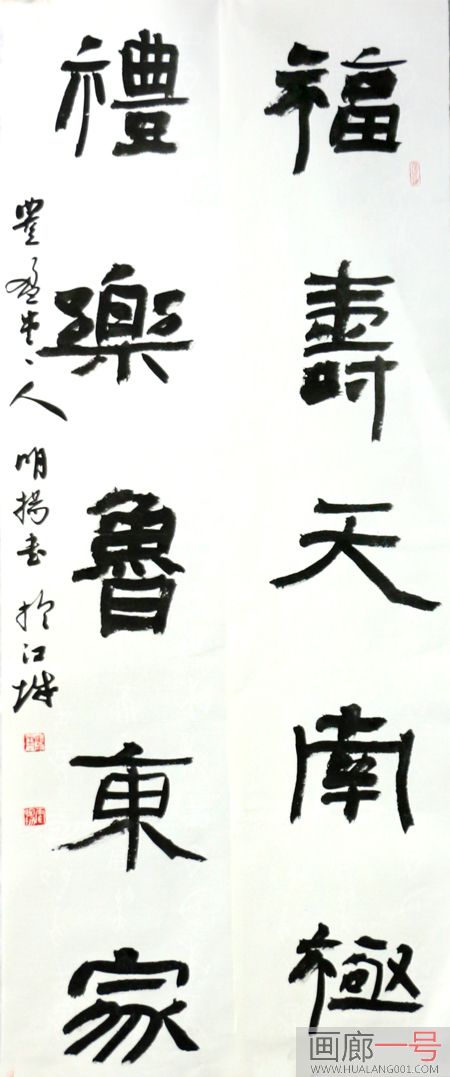 福壽天南極
禮樂魯東家
豐盈堂人明揚書於江城
画廊一号
WWW.HUALANG001.COM